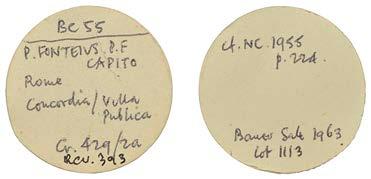 BC 55
P. FONTEIVS. P.F
CAPITO
Rome
Concordia/Villa
Publica
Cr. 429/2a
RCV. 393
cf. NC. 1955
p. 224.
Bauer Sale 1963
Lot 1113